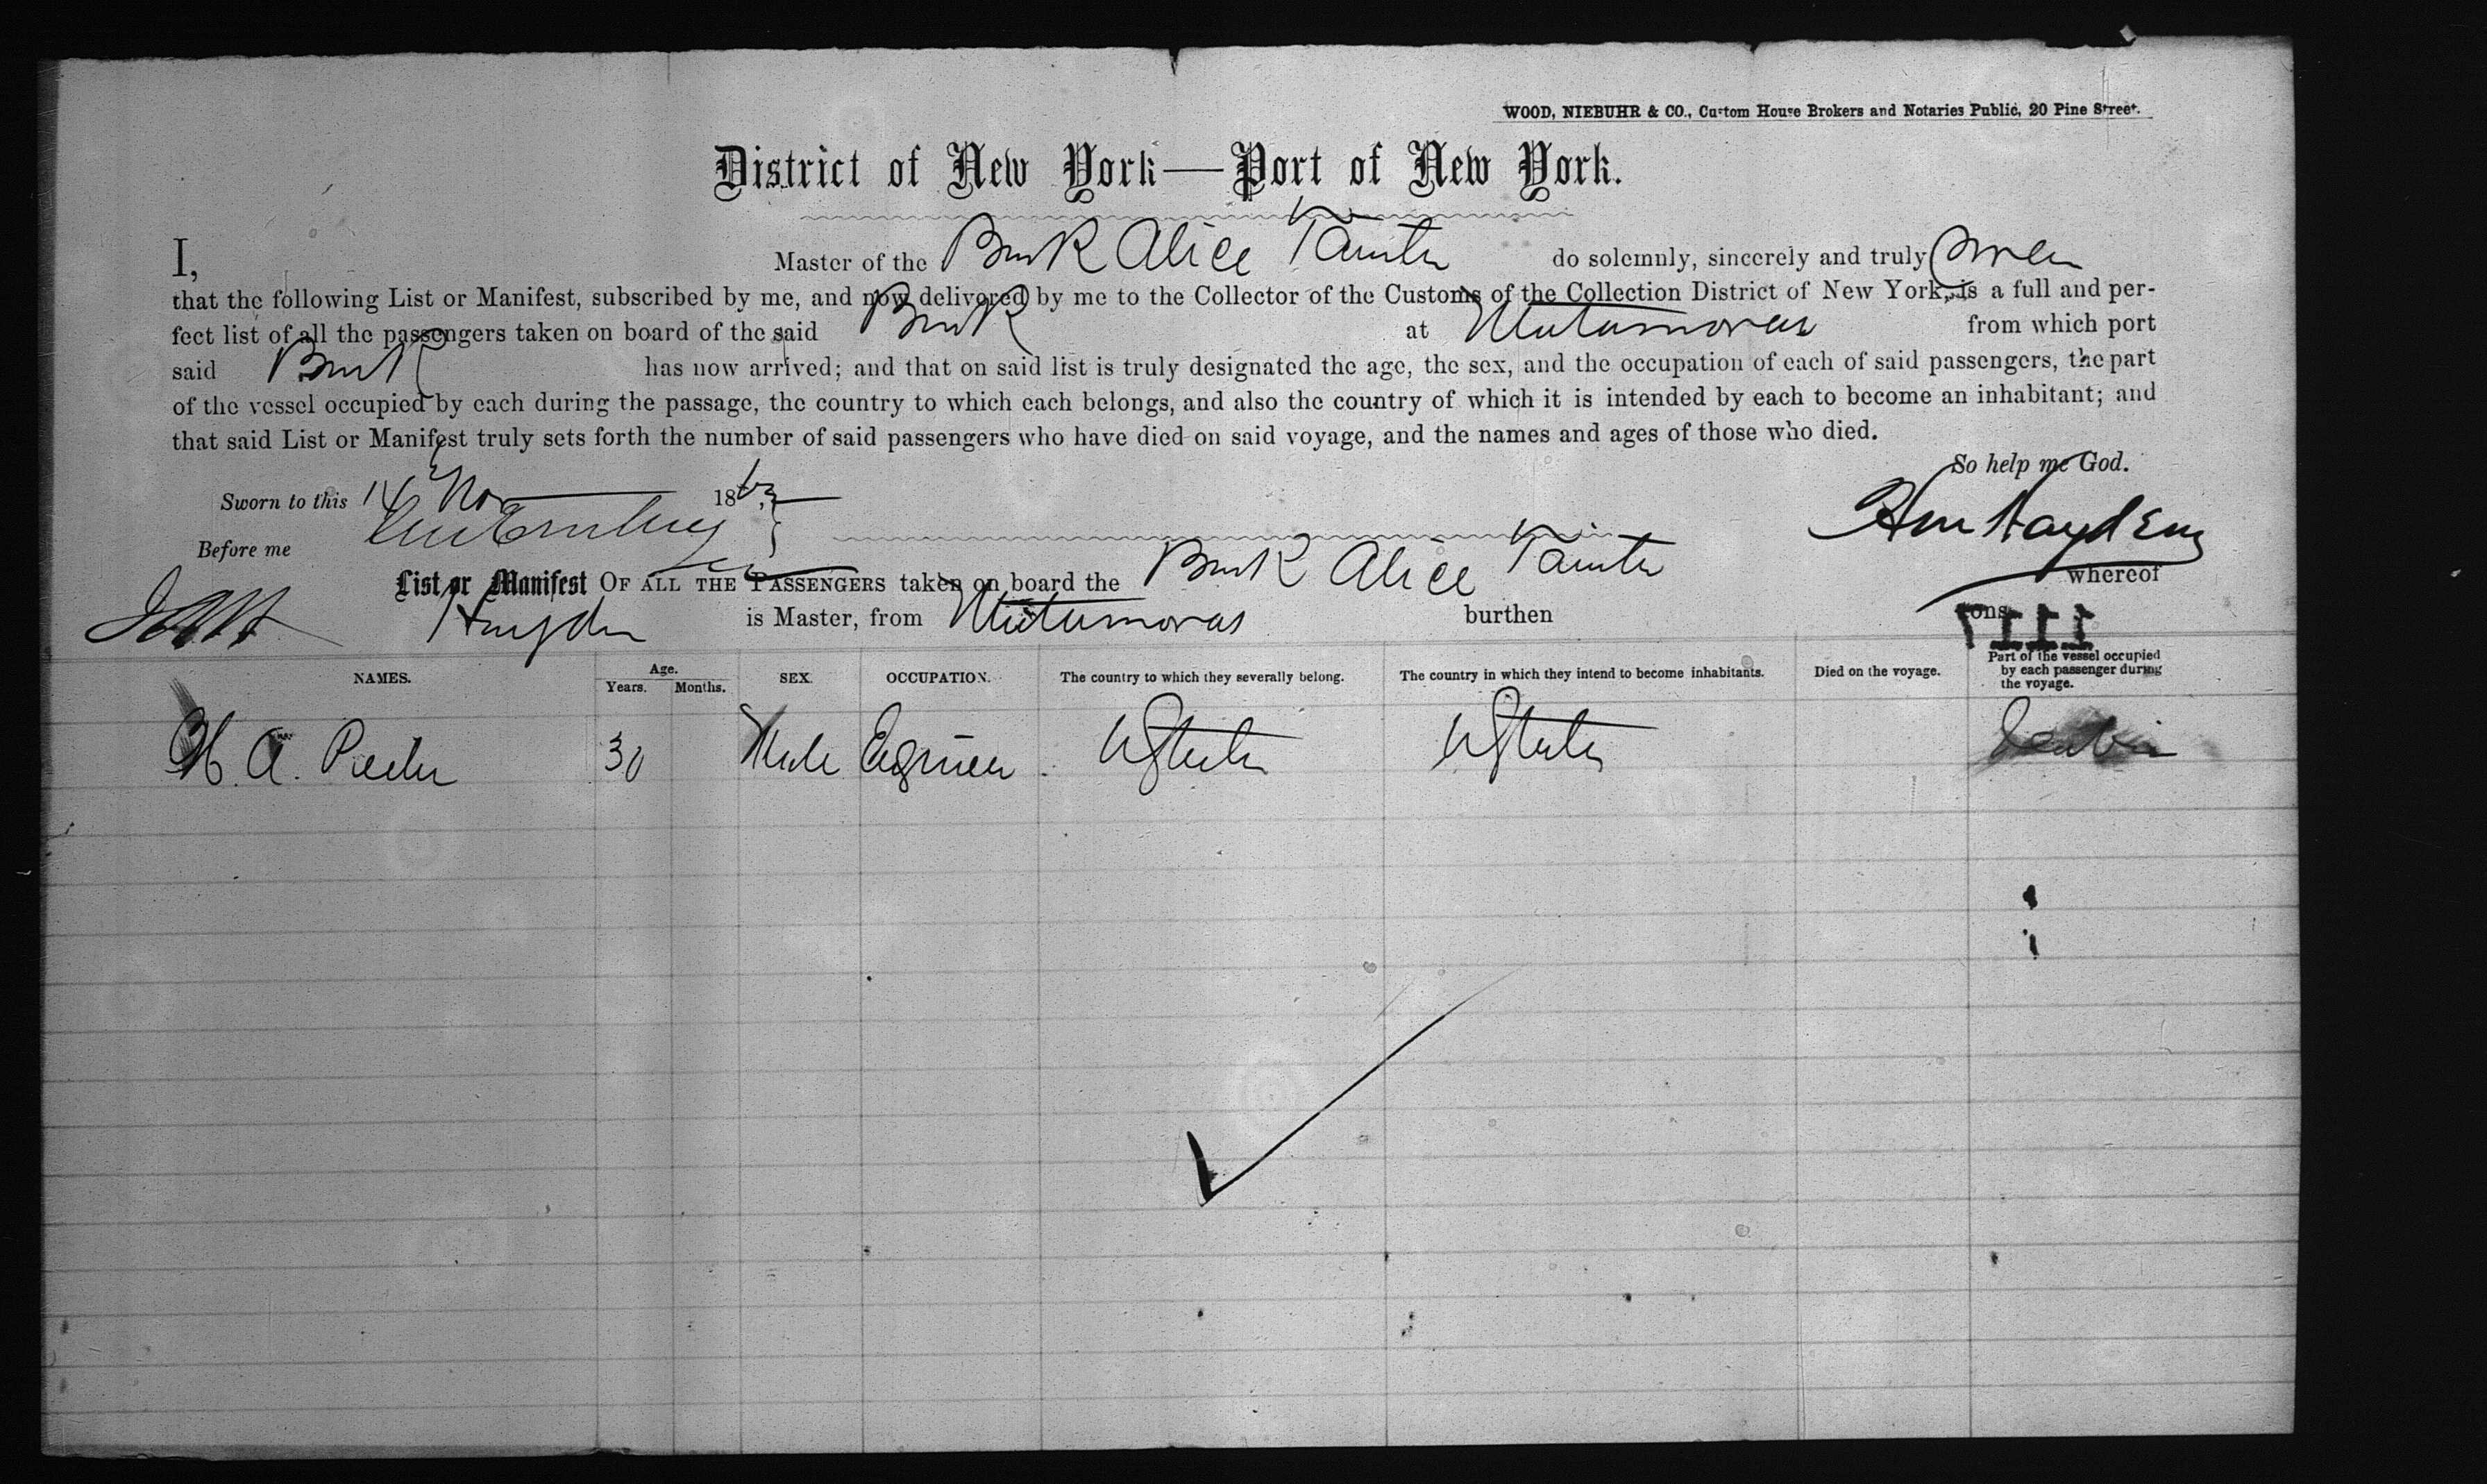 WOOD, NIEBUHR & CO., Custom House Brokers and Notaries Public, 20 Pine Street.
District of New York—Port of New York.
I, Master of the Bark Alice Tainter do solemnly, sincerely and truly swear
that the following List or Manifest, subscribed by me, and now delivered by me to the Collector of the Customs of the Collection District of New York, is a full and per-
fect list of all the passengers taken on board of the said Bark at Matamoras from which port
said Bark has now arrived; and that on said list is truly designated the age, the sex, and the occupation of each of said passengers, the part
of the vessel occupied by each during the passage, the country to which each belongs, and also the country of which it is intended by each to become an inhabitant; and
that said List or Manifest truly sets forth the number of said passengers who have died on said voyage, and the names and ages of those who died.
So help me God.
Sworn to this 14 Nov 1863
Before me
List or Manifest OF ALL THE PASSENGERS taken on board the Bark Alice Tainter whereof
Hayden is Master, from Matamoras burthen tons
NAMES. Age. Years. Months. SEX. OCCUPATION. The country to which they severally belong. The country in which they intend to become inhabitants. Died on the voyage. Part of the vessel occupied by each passenger during the voyage.
H. A. 30 Male Engineer U States U States